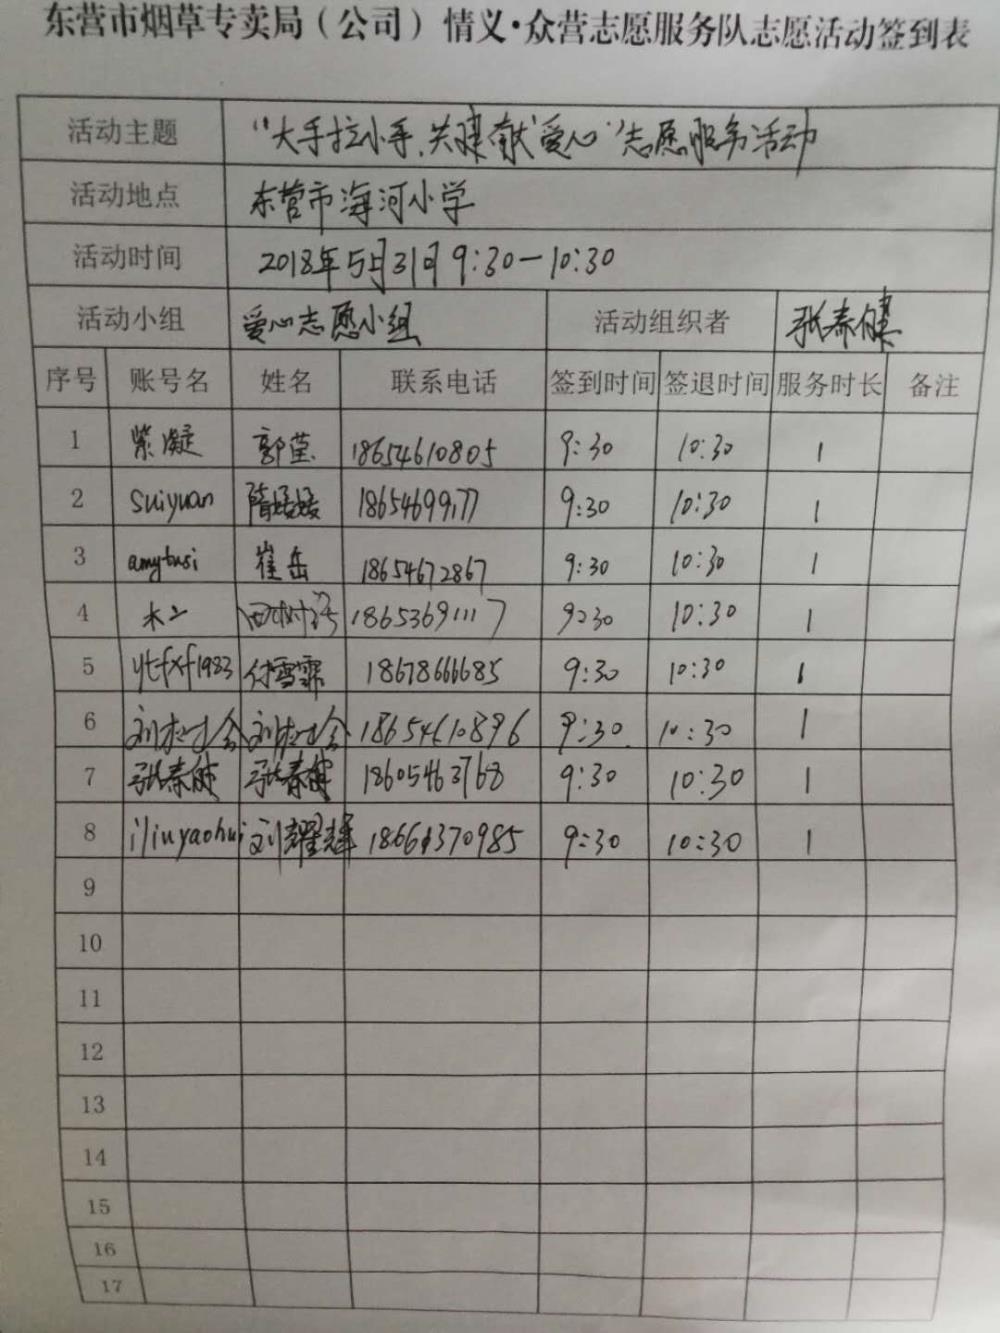 东营市烟草专卖局（公司）情义·众营志愿服务队志愿活动签到表
活动主题 “大手拉小手，共建献爱心”志愿服务活动
活动地点 东营市海河小学
活动时间 2018年5月31日 9:30—10:30
活动小组 爱心志愿小组 活动组织者 张春健
序号 账号名 姓名 联系电话 签到时间 签退时间 服务时长 备注
1 紫凝 郭莹 18654610805 9:30 10:30 1
2 suiyuan 隋媛媛 18654699177 9:30 10:30 1
3 amytusi 崔岳 18654672867 9:30 10:30 1
4 木二 田树 18653691117 9:30 10:30 1
5 ytfxf1983 付雪霏 18678666685 9:30 10:30 1
6 刘 刘 18654610896 9:30 10:30 1
7 张春健 张春健 18605463768 9:30 10:30 1
8 iliuyaohui 刘耀辉 18661370985 9:30 10:30 1
9
10
11
12
13
14
15
16
17